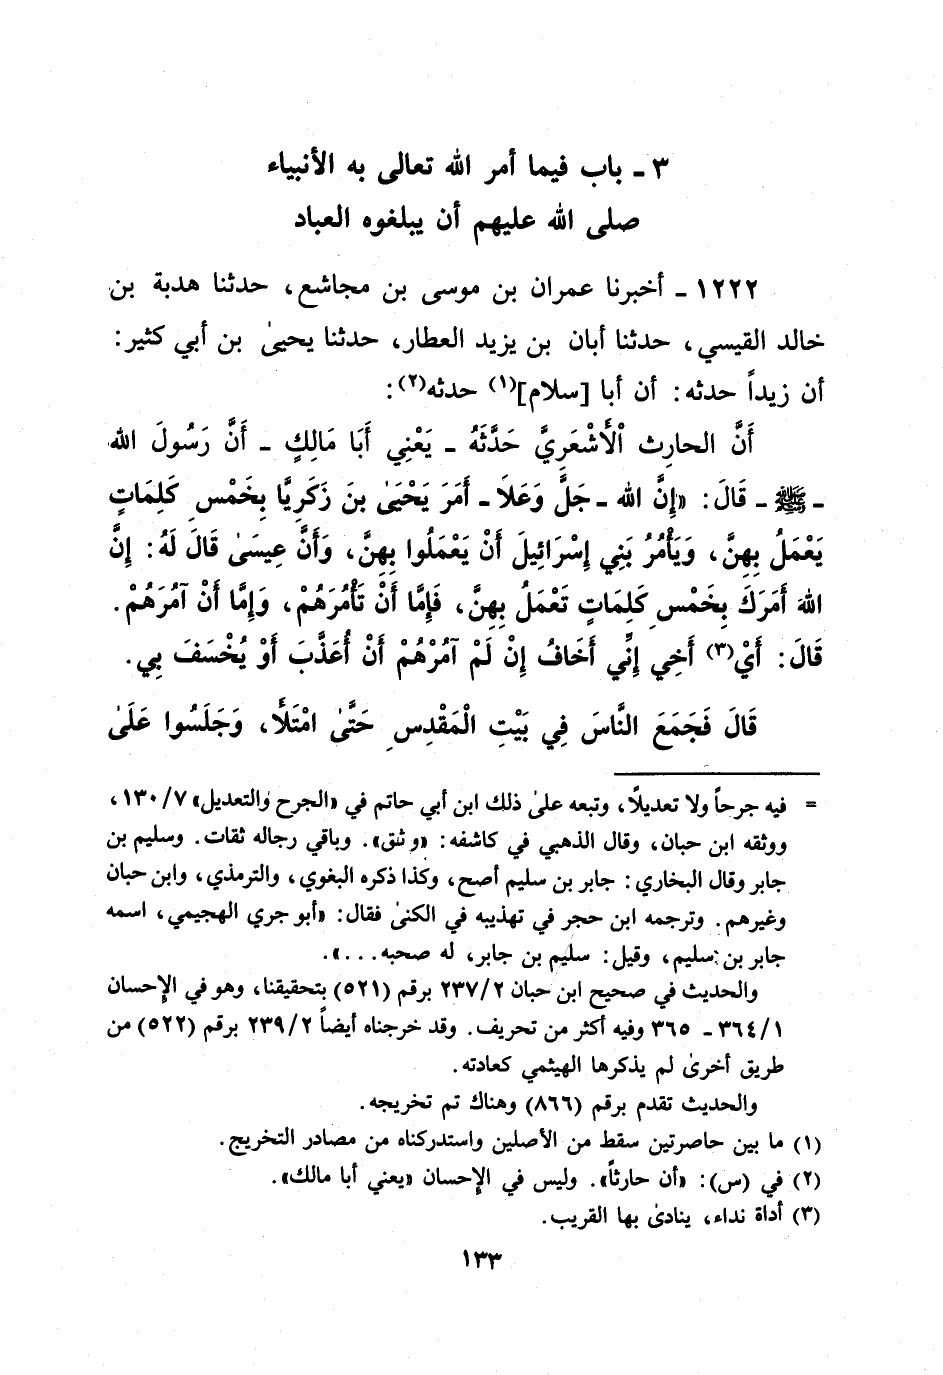 ٣ ـ باب فيما أمر الله تعالى به الأنبياء
صلى الله عليهم أن يبلغوه العباد
١٢٢٢ ـ أخبرنا عمران بن موسى بن مجاشع، حدثنا هدبة بن
خالد القيسي، حدثنا أبان بن يزيد العطار، حدثنا يحيىٰ بن أبي كثير:
أن زيداً حدثه: أن أبا [سلام](١) حدثه(٢):
أَنَّ الحارِث الْأَشْعَرِيَّ حَدَّثَهُ ـ يَعْنِي أَبَا مَالِكٍ ـ أَنَّ رَسُولَ الله
ـ ﷺ ـ قَالَ: «إِنَّ الله ـ جَلَّ وَعَلَا ـ أَمَرَ يَحْيَىٰ بنَ زَكَرِيَّا بِخَمْسِ كَلِمَاتٍ
يَعْمَلُ بِهِنَّ، وَيَأْمُرُ بَنِي إِسْرَائِيلَ أَنْ يَعْمَلُوا بِهِنَّ، وَأَنَّ عِيسَىٰ قَالَ لَهُ: إِنَّ
اللهَ أَمَرَكَ بِخَمْسِ كَلِمَاتٍ تَعْمَلُ بِهِنَّ، فَإِمَّا أَنْ تَأْمُرَهُمْ، وَإِمَّا أَنْ آمُرَهُمْ.
قَالَ: أَيْ(٣) أَخِي إِنِّي أَخَافُ إِنْ لَمْ آمُرْهُمْ أَنْ أُعَذَّبَ أَوْ يُخْسَفَ بِي.
قَالَ فَجَمَعَ النَّاسَ فِي بَيْتِ الْمَقْدِسِ حَتَّىٰ امْتَلَأَ، وَجَلَسُوا عَلَىٰ
= فيه جرحاً ولا تعديلًا، وتبعه علىٰ ذلك ابن أبي حاتم في «الجرح والتعديل» ١٣٠/٧،
ووثقه ابن حبان، وقال الذهبي في كاشفه: «وثق». وباقي رجاله ثقات. وسليم بن
جابر وقال البخاري: جابر بن سليم أصح، وكذا ذكره البغوي، والترمذي، وابن حبان
وغيرهم. وترجمه ابن حجر في تهذيبه في الكنىٰ فقال: «أبو جري الهجيمي، اسمه
جابر بن سليم، وقيل: سليم بن جابر، له صحبه...».
والحديث في صحيح ابن حبان ٢٣٧/٢ برقم (٥٢١) بتحقيقنا، وهو في الإحسان
٣٦٤/١ ـ ٣٦٥ وفيه أكثر من تحريف. وقد خرجناه أيضاً ٢٣٩/٢ برقم (٥٢٢) من
طريق أخرىٰ لم يذكرها الهيثمي كعادته.
والحديث تقدم برقم (٨٦٦) وهناك تم تخريجه.
(١) ما بين حاصرتين سقط من الأصلين واستدركناه من مصادر التخريج.
(٢) في (س): «أن حارثاً». وليس في الإحسان «يعني أبا مالك».
(٣) أداة نداء، ينادىٰ بها القريب.
١٣٣